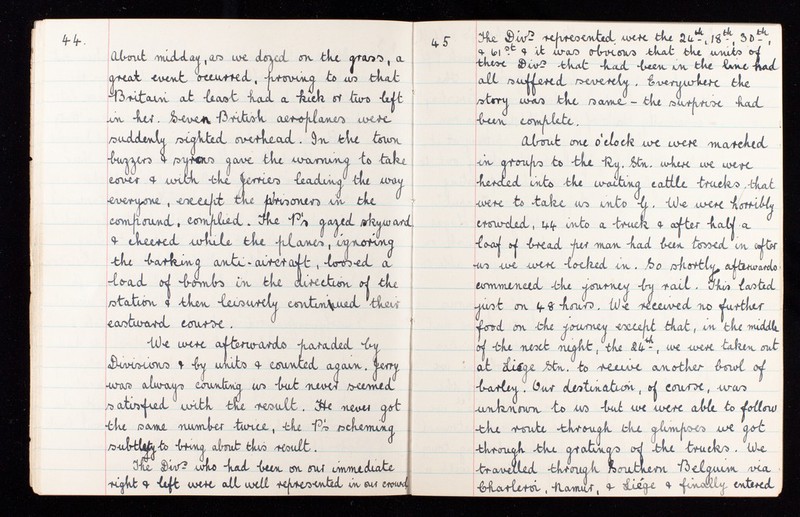 44.
About midday, as we dozed on the grass, a
great event occurred, proving to us that
Britain at least had a kick or two left
in her. Seven British aeroplanes were
suddenly sighted overhead. In the town
buzzers & syrens gave the warning to take
cover & with the Jerries leading the way
everyone, except the prisoners in the
compound, complied. The P's gazed skyward
& cheered while the planes, ignoring
the barking anti-aircraft, loosed a
load of bombs in the direction of the
station & then leisurely continued their
eastward course.
We were afterwards paraded by
Divisions & by units & counted again. Jerry
was always counting us but never seemed
satisfied with the result. He never got
the same number twice, the P's scheming
subtlely to bring about this result.
The Divs who had been on our immediate
right & left were all well represented in our crowd
45
The Divs represented were the 24th, 18th, 30th,
& 61st & it was obvious that the units of
these Divs that had been in the line had
all suffered severely. Everywhere the
story was the same – the surprise had
been complete.
About one o'clock we were marched
in groups to the Ry. Stn. where we were
herded into the waiting cattle trucks that
were to take us into G. We were horribly
crowded, 44 into a truck & after half a
loaf of bread per man had been tossed in after
us we were locked in. So shortly afterwards
commenced the journey by rail. This lasted
just on 48 hours. We received no further
food on the journey except that, in the middle
of the next night, the 24th, we were taken out
at Liége Stn. to receive another bowl of
barley. Our destination, of course, was
unknown to us but we were able to follow
the route through the glimpses we got
through the gratings of the trucks. We
travelled through Southern Belguim via
Charleroi, Namur, & Liége & finally entered